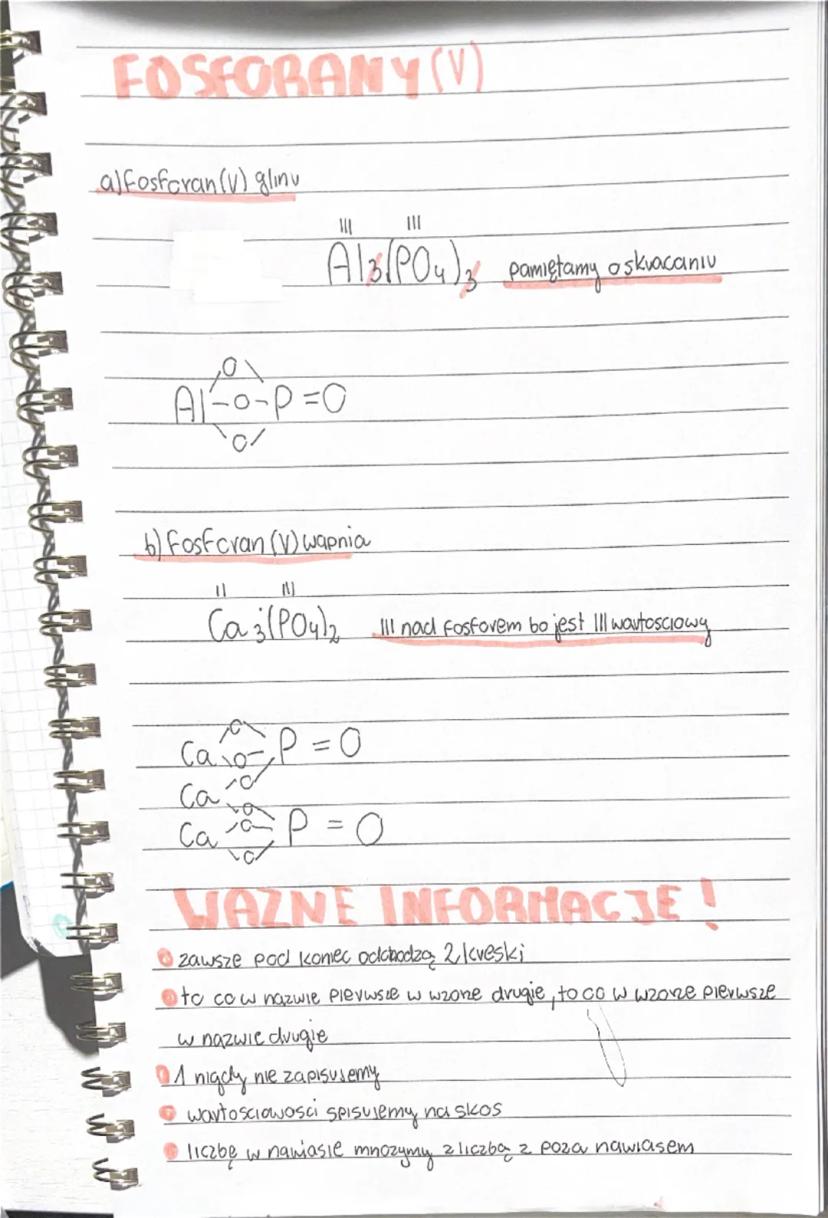 FOSFORANY (V)
a) fosforan (V) glinu
III III
Al3(PO4)3 pamiętamy o skracaniu
O
Al-O-P=O
O
b) fosforan (V) wapnia
II III
Ca3(PO4)2 III nad fosforem bo jest III wartosciowy
O
Ca O- P = O
O
Ca
O
Ca O P = O
O
WAZNE INFORMACJE!
zawsze pod koniec odchodzą 2 kreski
to co w nazwie pierwsze w wzorze drugie, to co w wzorze pierwsze
w nazwie drugie
1 nigdy nie zapisujemy
wartosciowosci spisujemy na skos
liczbę w nawiasie mnozymy z liczbą z poza nawiasem